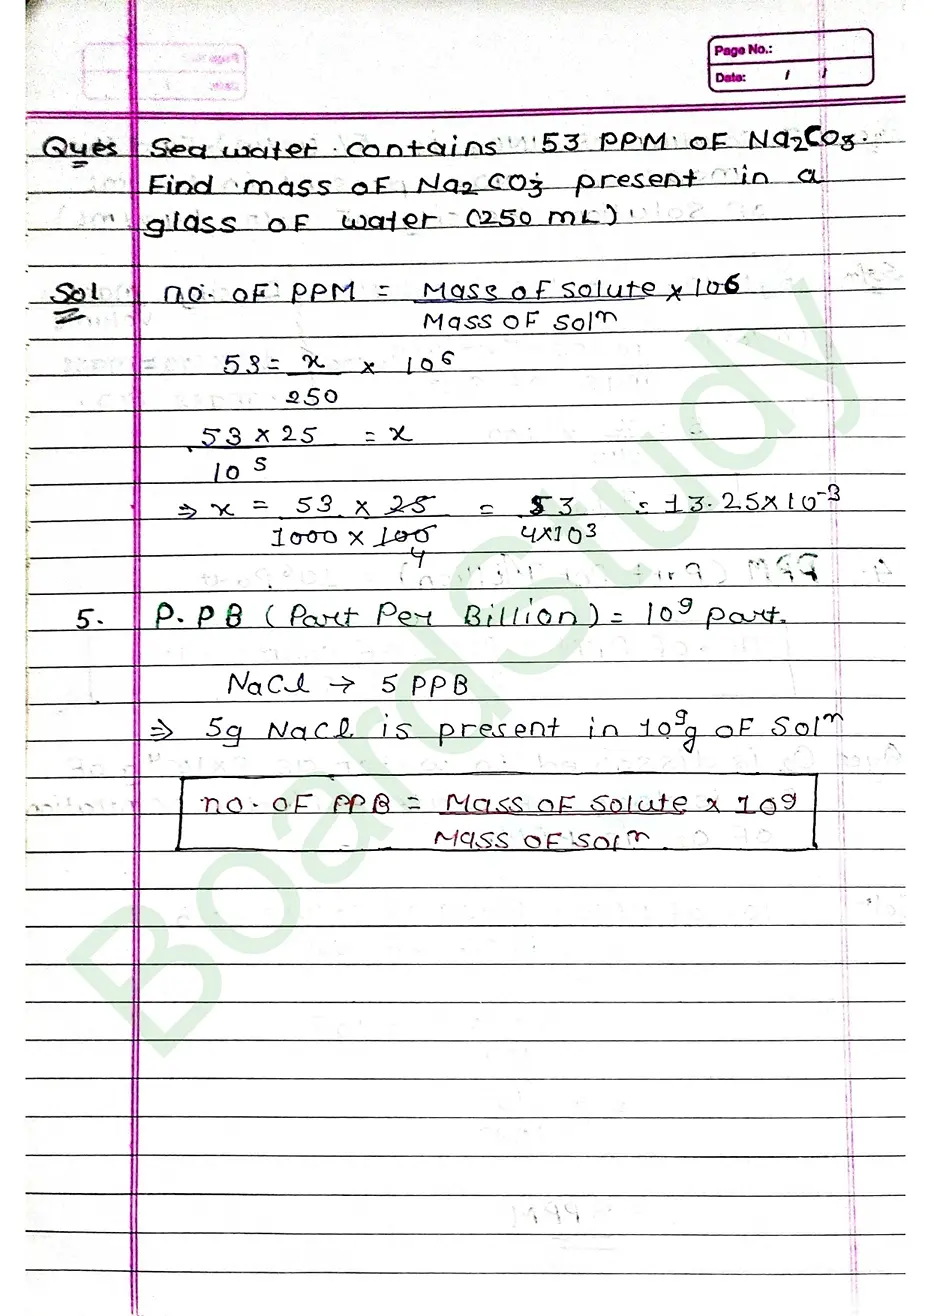 Page No.:
Date: / /
Ques Sea water contains 53 PPM OF Na₂CO₃.
Find mass OF Na₂CO₃ present in a
glass OF water (250 mL)
Sol no. OF PPM = Mass OF Solute × 10⁶
Mass OF Solⁿ
53 = x × 10⁶
250
53 × 25 = x
10⁵
⇒ x = 53 × 25 = 53 = 13.25 × 10⁻³
1000 × 100 4×10³
4
5. P.P B (Part Per Billion) = 10⁹ part.
NaCl → 5 PPB
⇒ 5g NaCl is present in 10⁹g OF Solⁿ
no. OF PPB = Mass OF Solute × 10⁹
Mass OF Solⁿ
BoardStudy